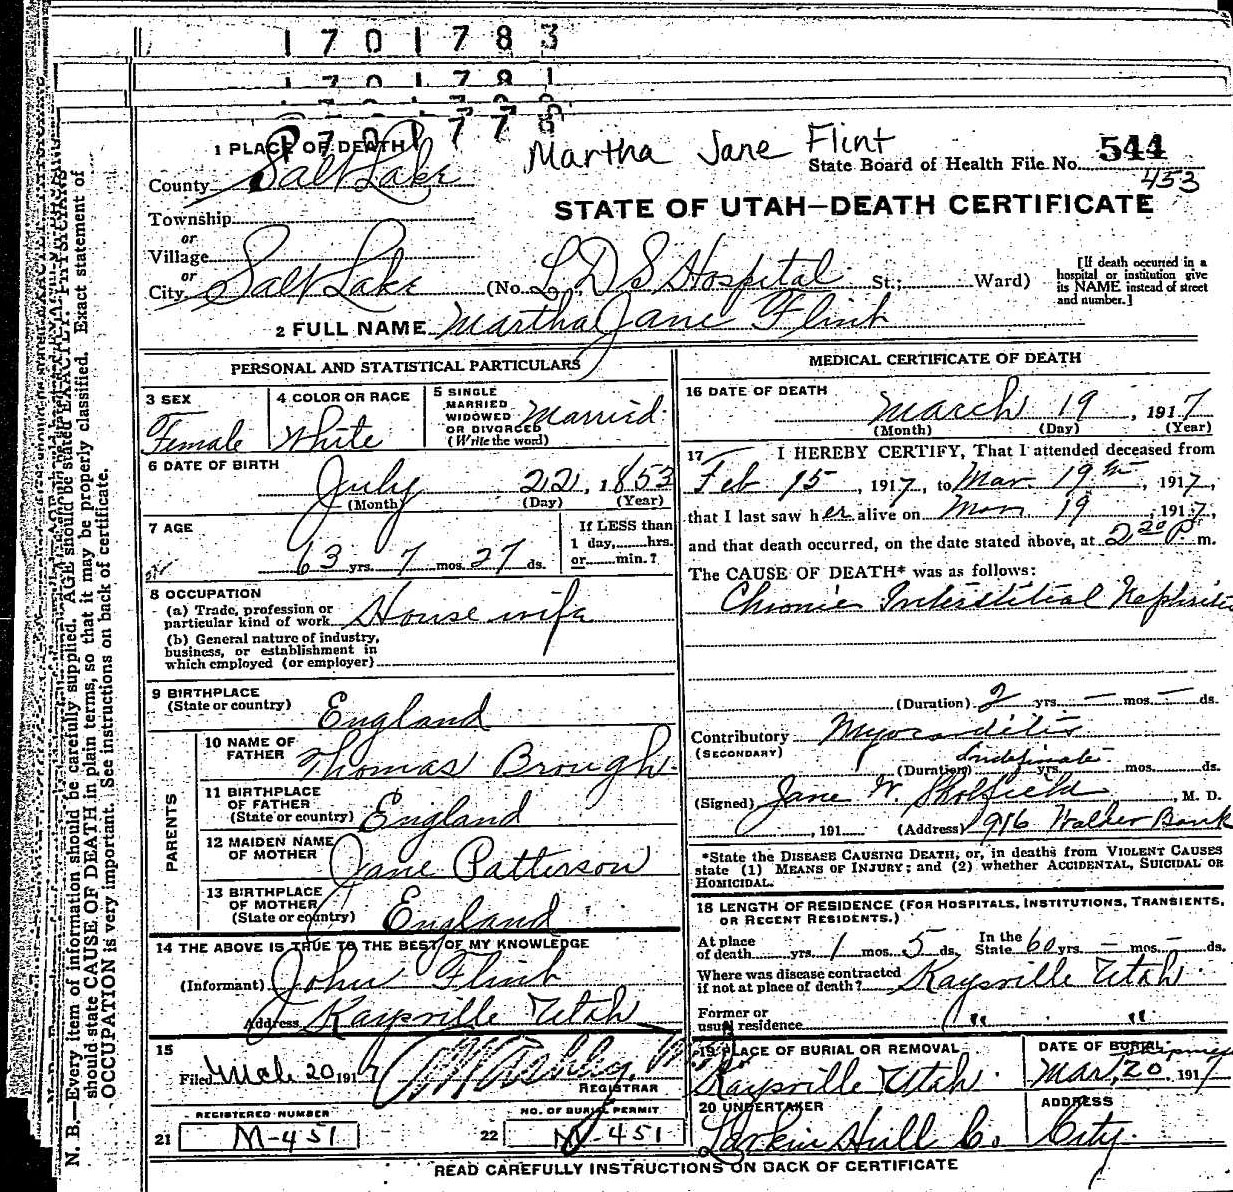 1 7 0 1 7 8 3
1 7 0 1 7 8 1
1 7 0 1 7 7 8
1 PLACE OF DEATH
Martha Jane Flint
State Board of Health File No. 544
453
County Salt Lake
STATE OF UTAH—DEATH CERTIFICATE
Township
or
Village
or
City Salt Lake (No. L D S Hospital St.; Ward)
[If death occurred in a hospital or institution give its NAME instead of street and number.]
2 FULL NAME Martha Jane Flint
PERSONAL AND STATISTICAL PARTICULARS
3 SEX Female
4 COLOR OR RACE White
5 SINGLE MARRIED WIDOWED OR DIVORCED (Write the word) Married
6 DATE OF BIRTH
July 22, 1853
(Month) (Day) (Year)
7 AGE
63 yrs. 7 mos. 27 ds.
If LESS than 1 day, hrs. or min.?
8 OCCUPATION
(a) Trade, profession or particular kind of work Housewife
(b) General nature of industry, business, or establishment in which employed (or employer)
9 BIRTHPLACE
(State or country) England
PARENTS
10 NAME OF FATHER Thomas Brough
11 BIRTHPLACE OF FATHER (State or country) England
12 MAIDEN NAME OF MOTHER Jane Patterson
13 BIRTHPLACE OF MOTHER (State or country) England
14 THE ABOVE IS TRUE TO THE BEST OF MY KNOWLEDGE
(Informant) John Flint
Address Kaysville Utah
15
Filed Mch 20 1917
REGISTRAR
REGISTERED NUMBER
21 M-451
NO. OF BURIAL PERMIT
22 M-451
MEDICAL CERTIFICATE OF DEATH
16 DATE OF DEATH
March 19, 1917
(Month) (Day) (Year)
17 I HEREBY CERTIFY, That I attended deceased from
Feb 15, 1917, to Mar. 19th, 1917,
that I last saw her alive on Mar 19, 1917,
and that death occurred, on the date stated above, at 2 20 P. m.
The CAUSE OF DEATH* was as follows:
Chronic Interstitial Nephritis
(Duration) 2 yrs. — mos. — ds.
Contributory Myocarditis
(SECONDARY)
Indefinate
(Duration) yrs. mos. ds.
(Signed) Jane W. Skolfield, M. D.
, 191 (Address) 916 Walker Bank
*State the DISEASE CAUSING DEATH, or, in deaths from VIOLENT CAUSES state (1) MEANS OF INJURY; and (2) whether ACCIDENTAL, SUICIDAL OR HOMICIDAL.
18 LENGTH OF RESIDENCE (FOR HOSPITALS, INSTITUTIONS, TRANSIENTS, OR RECENT RESIDENTS.)
At place of death yrs. 1 mos. 5 ds. In the State 60 yrs. — mos. — ds.
Where was disease contracted if not at place of death? Kaysville Utah
Former or usual residence " "
19 PLACE OF BURIAL OR REMOVAL
Kaysville Utah.
DATE OF BURIAL
Mar, 20 1917
20 UNDERTAKER
Larkin Hull Co.
ADDRESS
City.
READ CAREFULLY INSTRUCTIONS ON BACK OF CERTIFICATE
N. B.—Every item of information should be carefully supplied. AGE should be stated EXACTLY. PHYSICIANS
should state CAUSE OF DEATH in plain terms, so that it may be properly classified. Exact statement of
OCCUPATION is very important. See instructions on back of certificate.